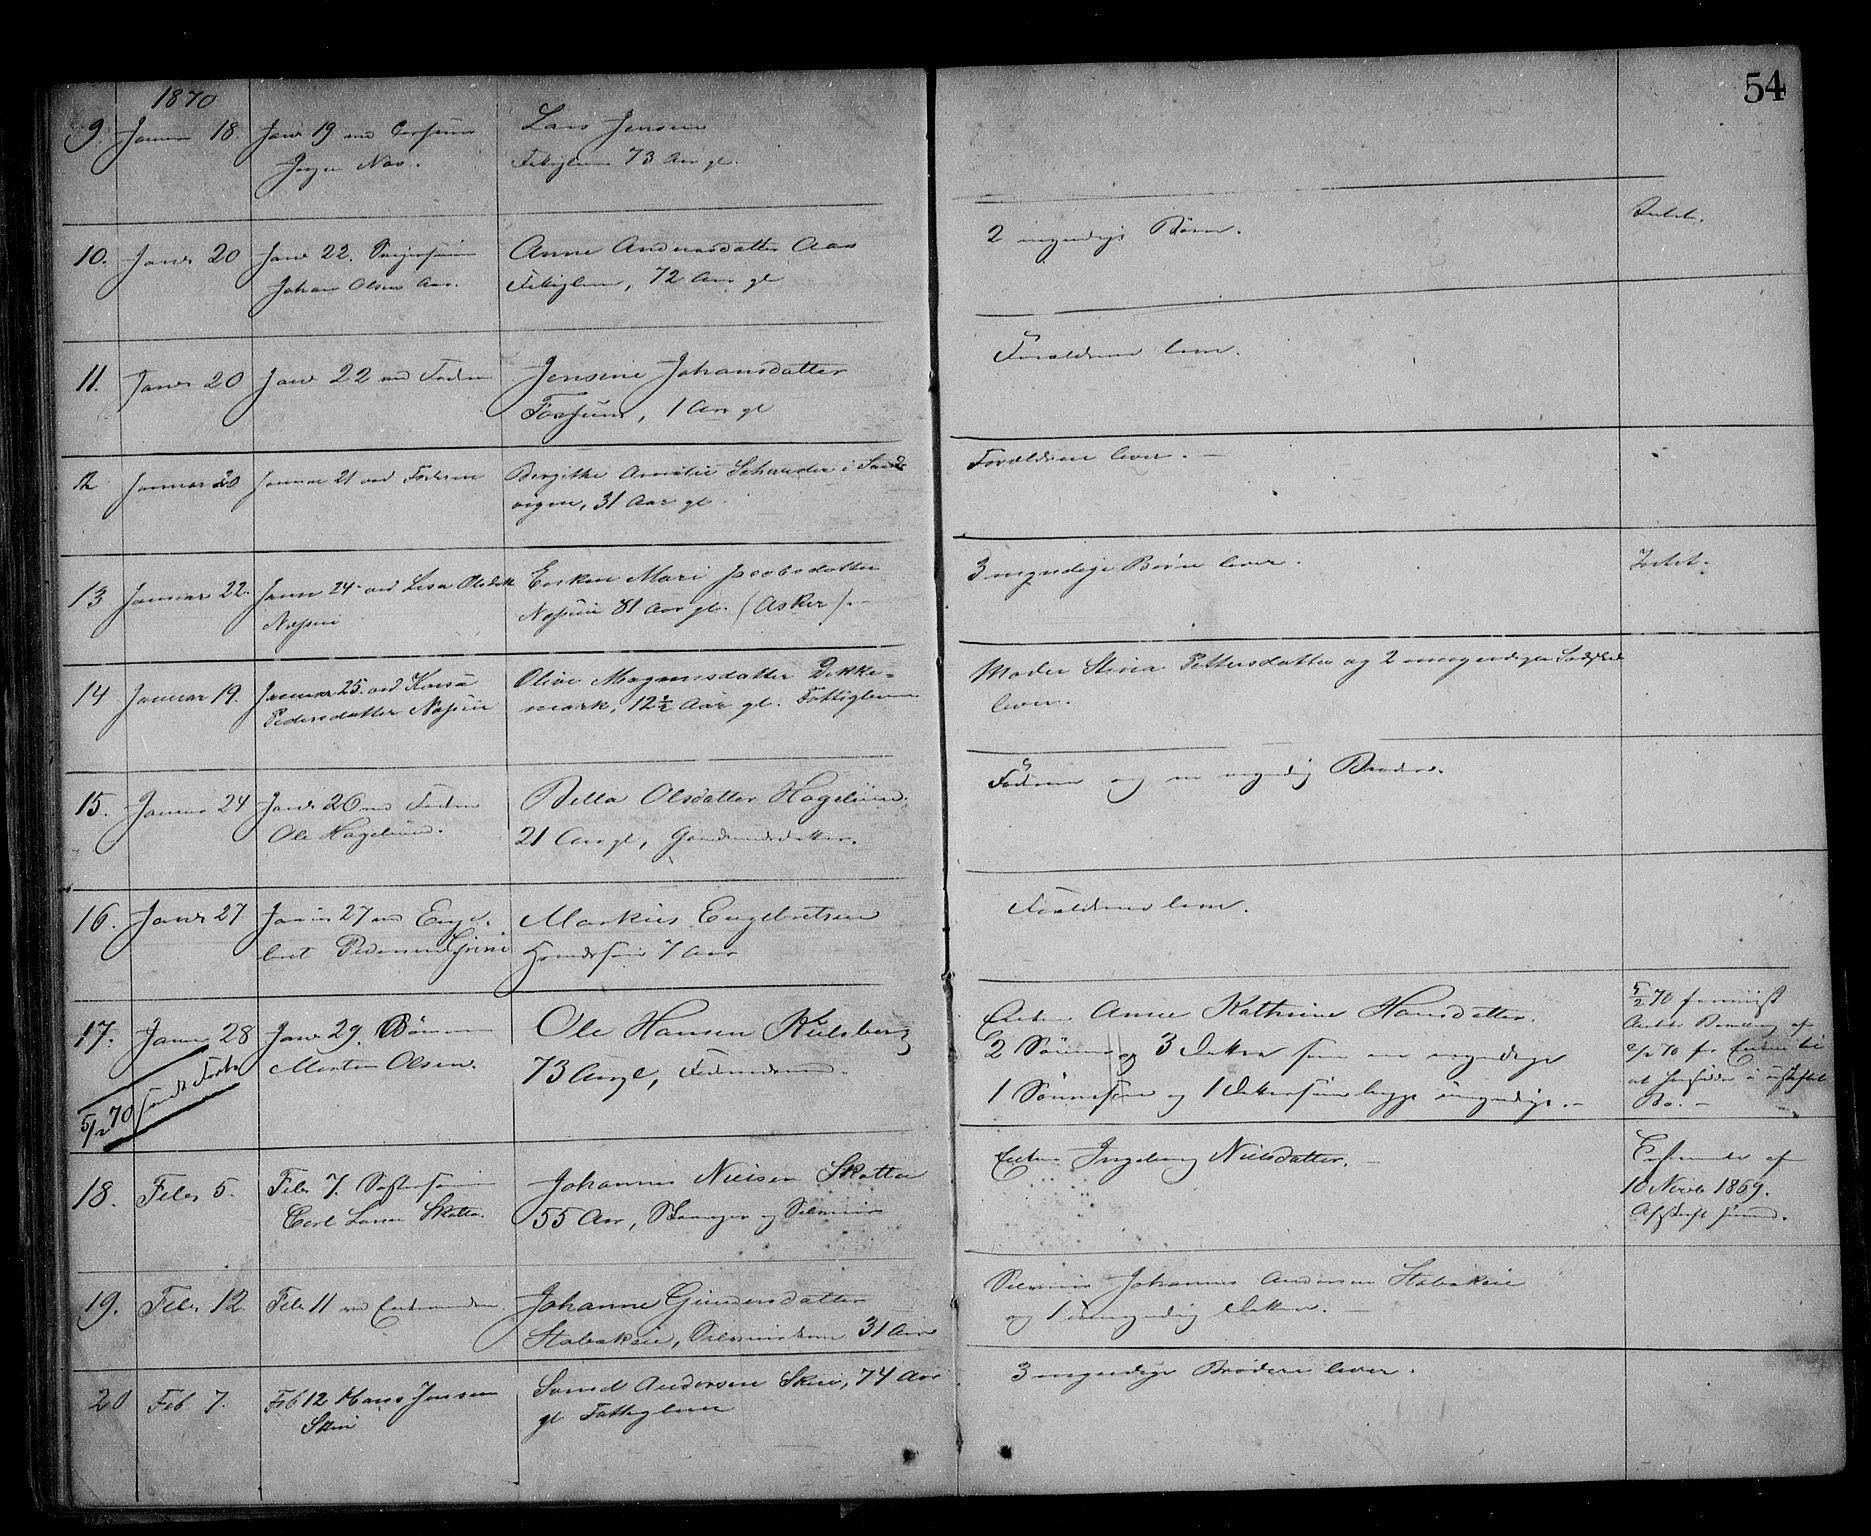 54
1870
9. Januar 18. Janr 19 ved
Jørgen Næs.
Lars Jensen
Fattiglem 73 Aar gl.
10. Janr 20 Janr 22.
Johan Olsen Aas.
Anne Andersdatter Aas
Fattiglem, 72 Aar gl
2 myndige Børn.
Intet.
11. Janr 20 Janr 22 ved Faderen
Jensine Johansdatter
1 Aar gl
Forældrene lever.
12 Januar 20 Januar 21 ved Faderen
Birgithe Amalie Schrøder i Sand-
vigen, 31 Aar gl.
Forældrene lever. -
13 Januar 22. Januar 24 ved Lisa Olsdatt
Næsøen
Enken Mari Jacobsdatter
Næsøen 81 Aar gl. (Asker). -
3 myndige Børn lever.
Intet.
14 Januar 19. Januar 25 ved
Pedersdatter Næsøen
Oline Magnusdatter Dikke-
mark, 12½ Aar gl. Fattiglem
Moder Stina Pettersdatter og 2 umyndige Sødskende
lever.
15. Januar 24 Janr 26 ved Faderen
Ole Hagelund.
Bella Olsdatter Hagelund.
21 Aar gl, Gaardmandsdatter.
Faderen og en myndig Broder.
16. Janr 27 Januar 27 ved Enge-
bret Pedersen
Markus Engebretsen
7 Aar
Forældrene lever.
17. Januar 28 Janr 29. Sønnen
Morten Olsen.
5/2 70
Ole Hansen Kulsberg
73 Aar gl,
Enken Anne Kathrine Hansdatter.
2 Sønner og 3 Døttre som ere myndige
1 Sønnesøn og 1 Dattersøn begge umyndige. -
5/2 70
70 for Enken til
at hensidde i uskiftet
Bo. -
18. Febr 5. Febr 7. Søstersøn
Carl Larsen Skotta.
Johannes Nielsen Skotta
55 Aar,
Enken Ingeborg Nielsdatter. -
af
10 Novb 1869.
Afskrift
19. Febr 12. Febr 11 ved Enkemanden
Johanne Gundersdatter
Stabækeie, 31 Aar
Johannes Andersen Stabækeie
og 1 umyndig Datter. -
20 Feb 7. Feb 12 Hans Jensen
Skui
Svend Andersen Skui, 74 Aar
gl Fattiglem
3 myndige Brødre lever.